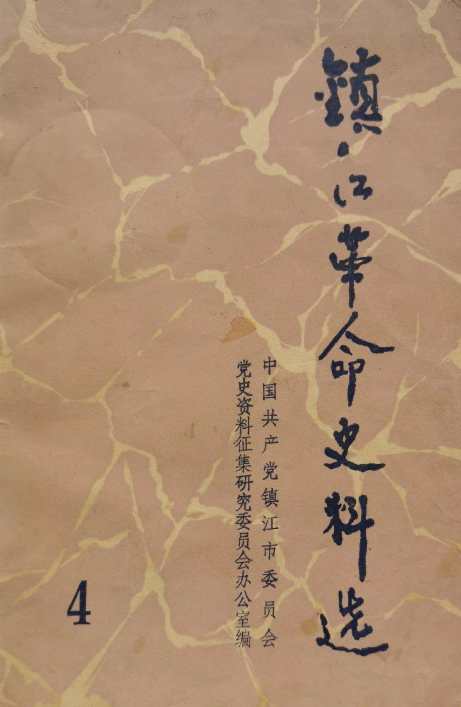 鎮江革命史料选
中国共产党镇江市委员会
党史资料征集研究委员会办公室编
4